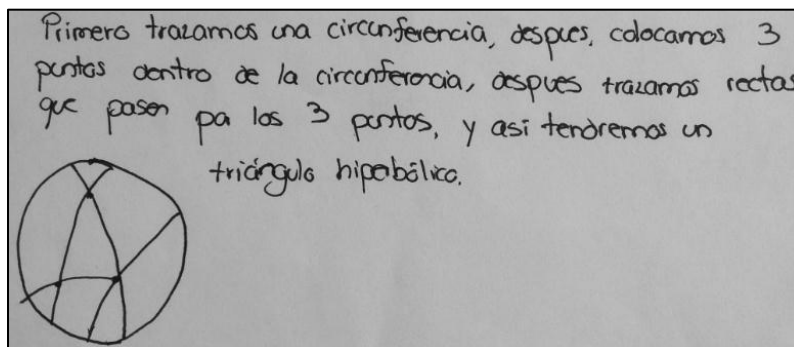 Primero trazamos una circunferencia, despues, colocamos 3
puntos dentro de la circunferencia, despues trazamos rectas
que pasen por los 3 puntos, y asi tendremos un
triángulo hiperbólico.